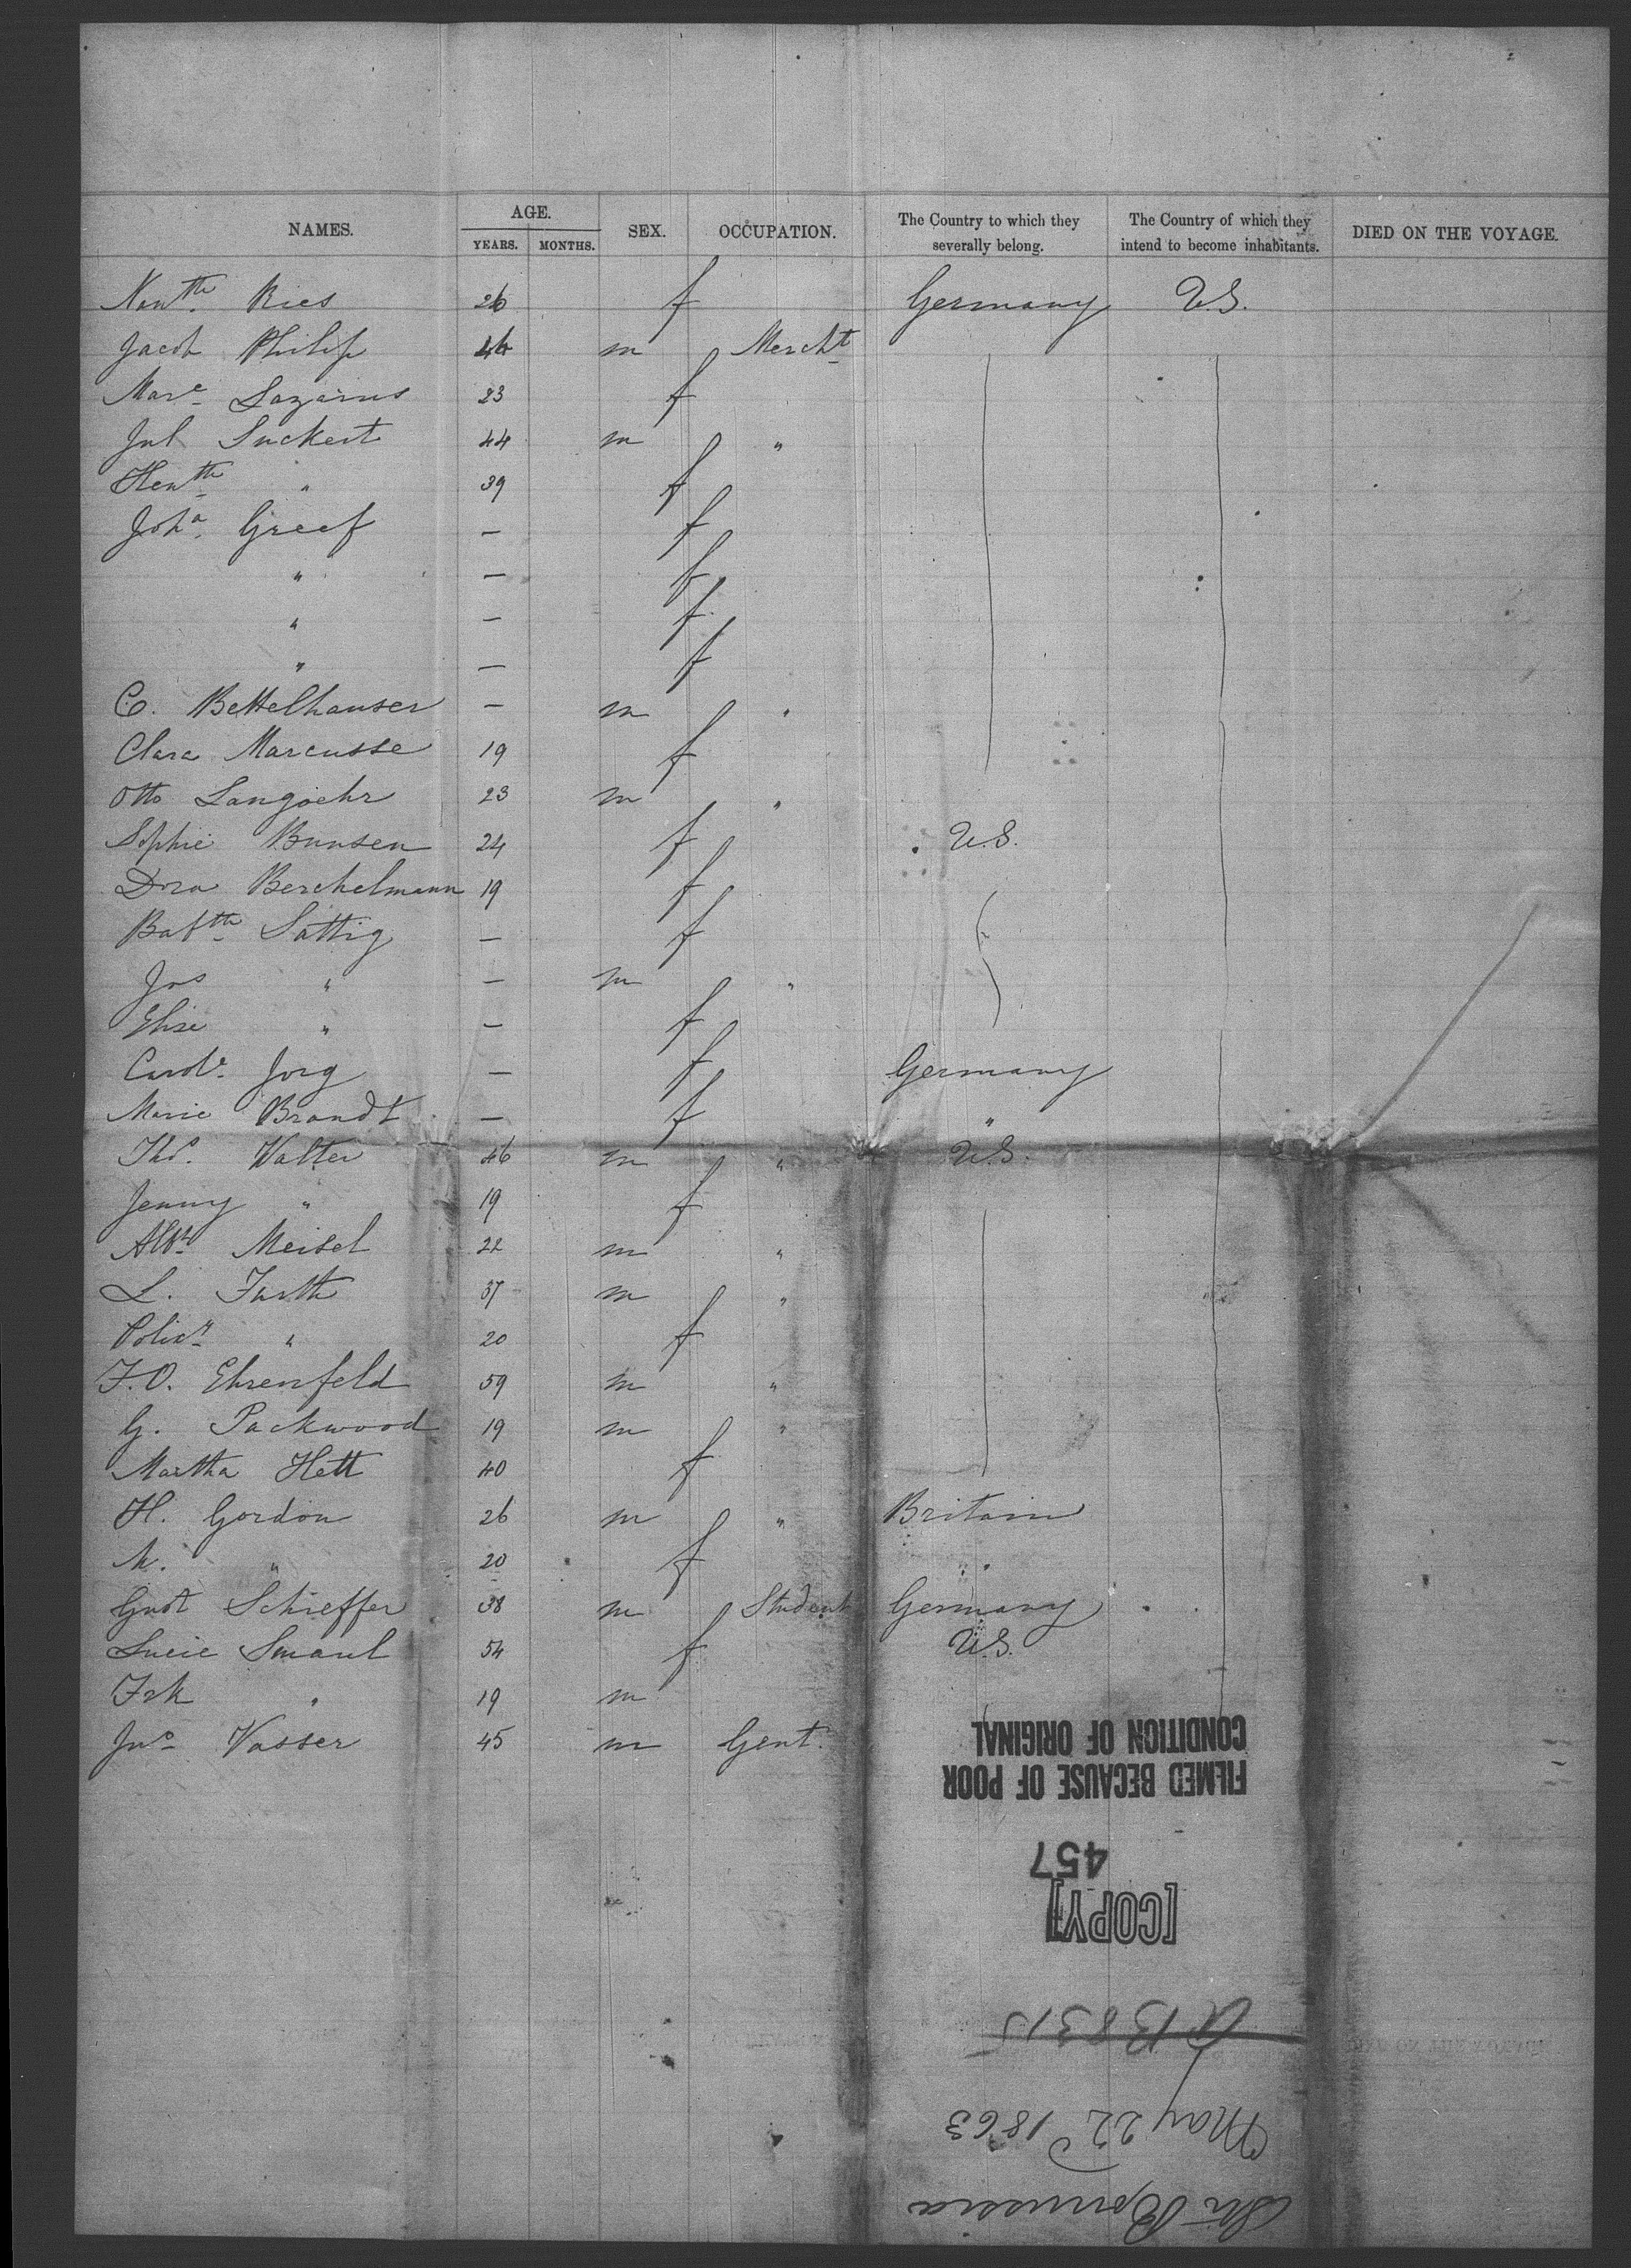 NAMES. AGE. YEARS. MONTHS. SEX. OCCUPATION. The Country to which they severally belong. The Country of which they intend to become inhabitants. DIED ON THE VOYAGE.
Ries 26 f Germany U.S.
Jacob Philip 44 m Mercht
Mare Lazarus 23 f
Jul Suckert 44 m "
Hentte " 39 f
Joha Greef — f
" — f
" — f
" — f
C. Bettelhauser — m "
Clara Marcusse 19 f
Otto Langoehr 23 m "
Sophie Bunsen 24 f U.S.
Dora Berchelmann 19 f
Babtte Sattig — f
Jos " — m "
Elise " — f
Carole Jorg — f Germany
Marie Brandt — f "
Thd. Walter 46 m " U.S.
Jenny " 19 f
Albt Meisel 22 m "
L. Furth 37 m "
" 20 f
F.O. Ehrenfeld 59 m "
G. Packwood 19 m "
Martha Hett 40 f
H. Gordon 26 m " Britain
M. " 20 f "
Gust Schieffer 38 m Student Germany
Lucie Smaul 54 f U.S.
Frk " 19 m
Jno Vasser 45 m Gent.
FILMED BECAUSE OF POOR
CONDITION OF ORIGINAL
457
[COPY]
B 8315
May 22d 1863
Str Borussia